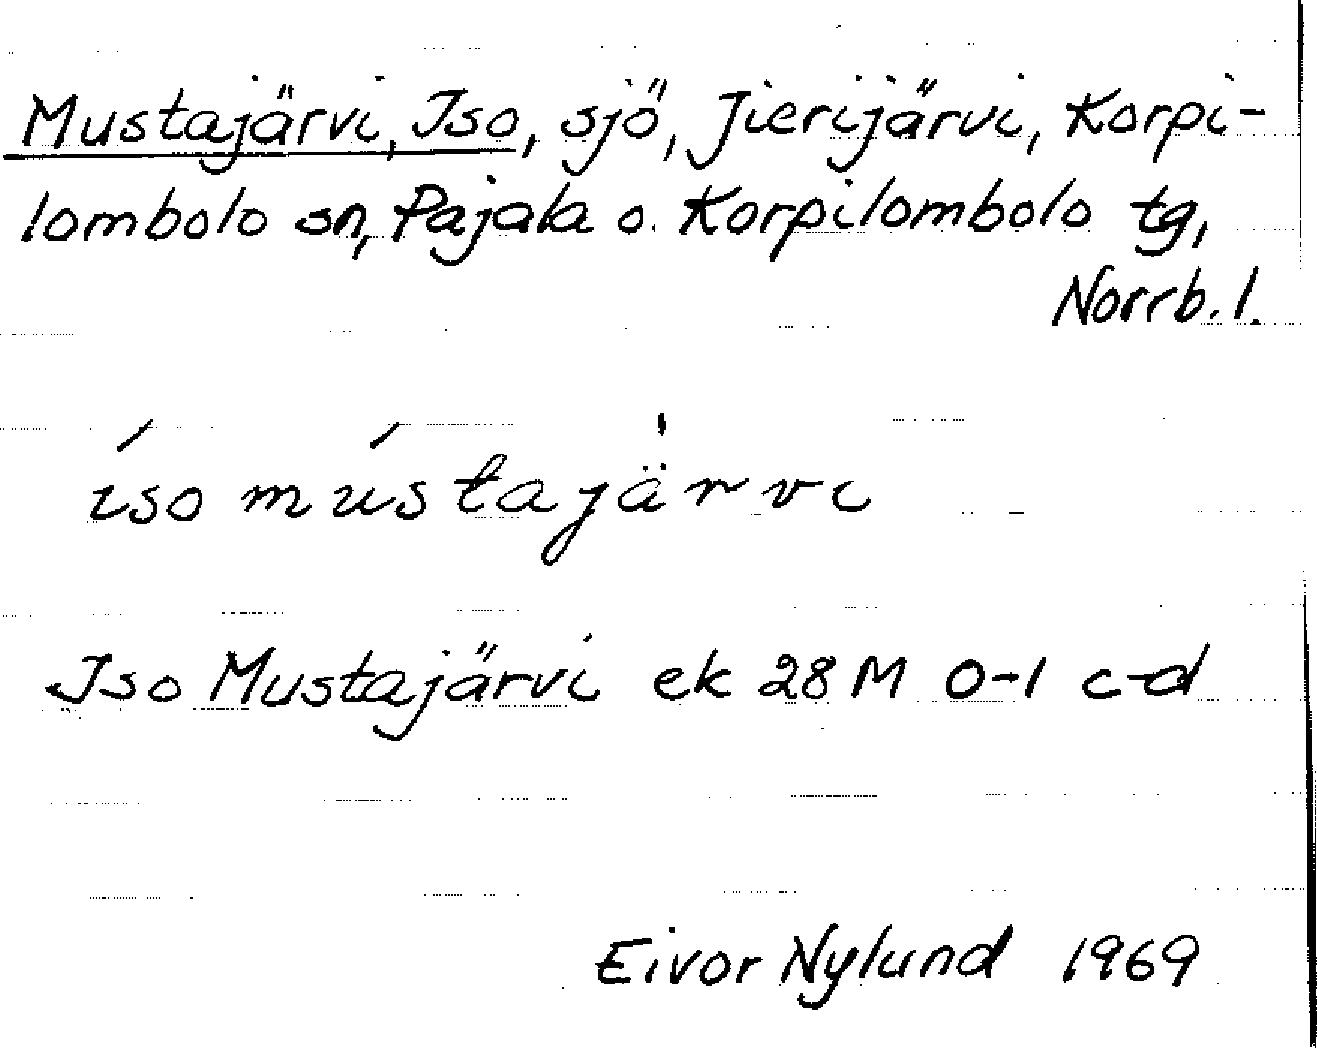 Mustajärvi, Iso, sjö, Jierijärvi, Korpi-
lombolo sn, Pajala o. Korpilombolo tg,
Norrb. l.
íso mústajä̀rvi
Iso Mustajärvi ek 28 M 0-1 c-d
Eivor Nylund 1969